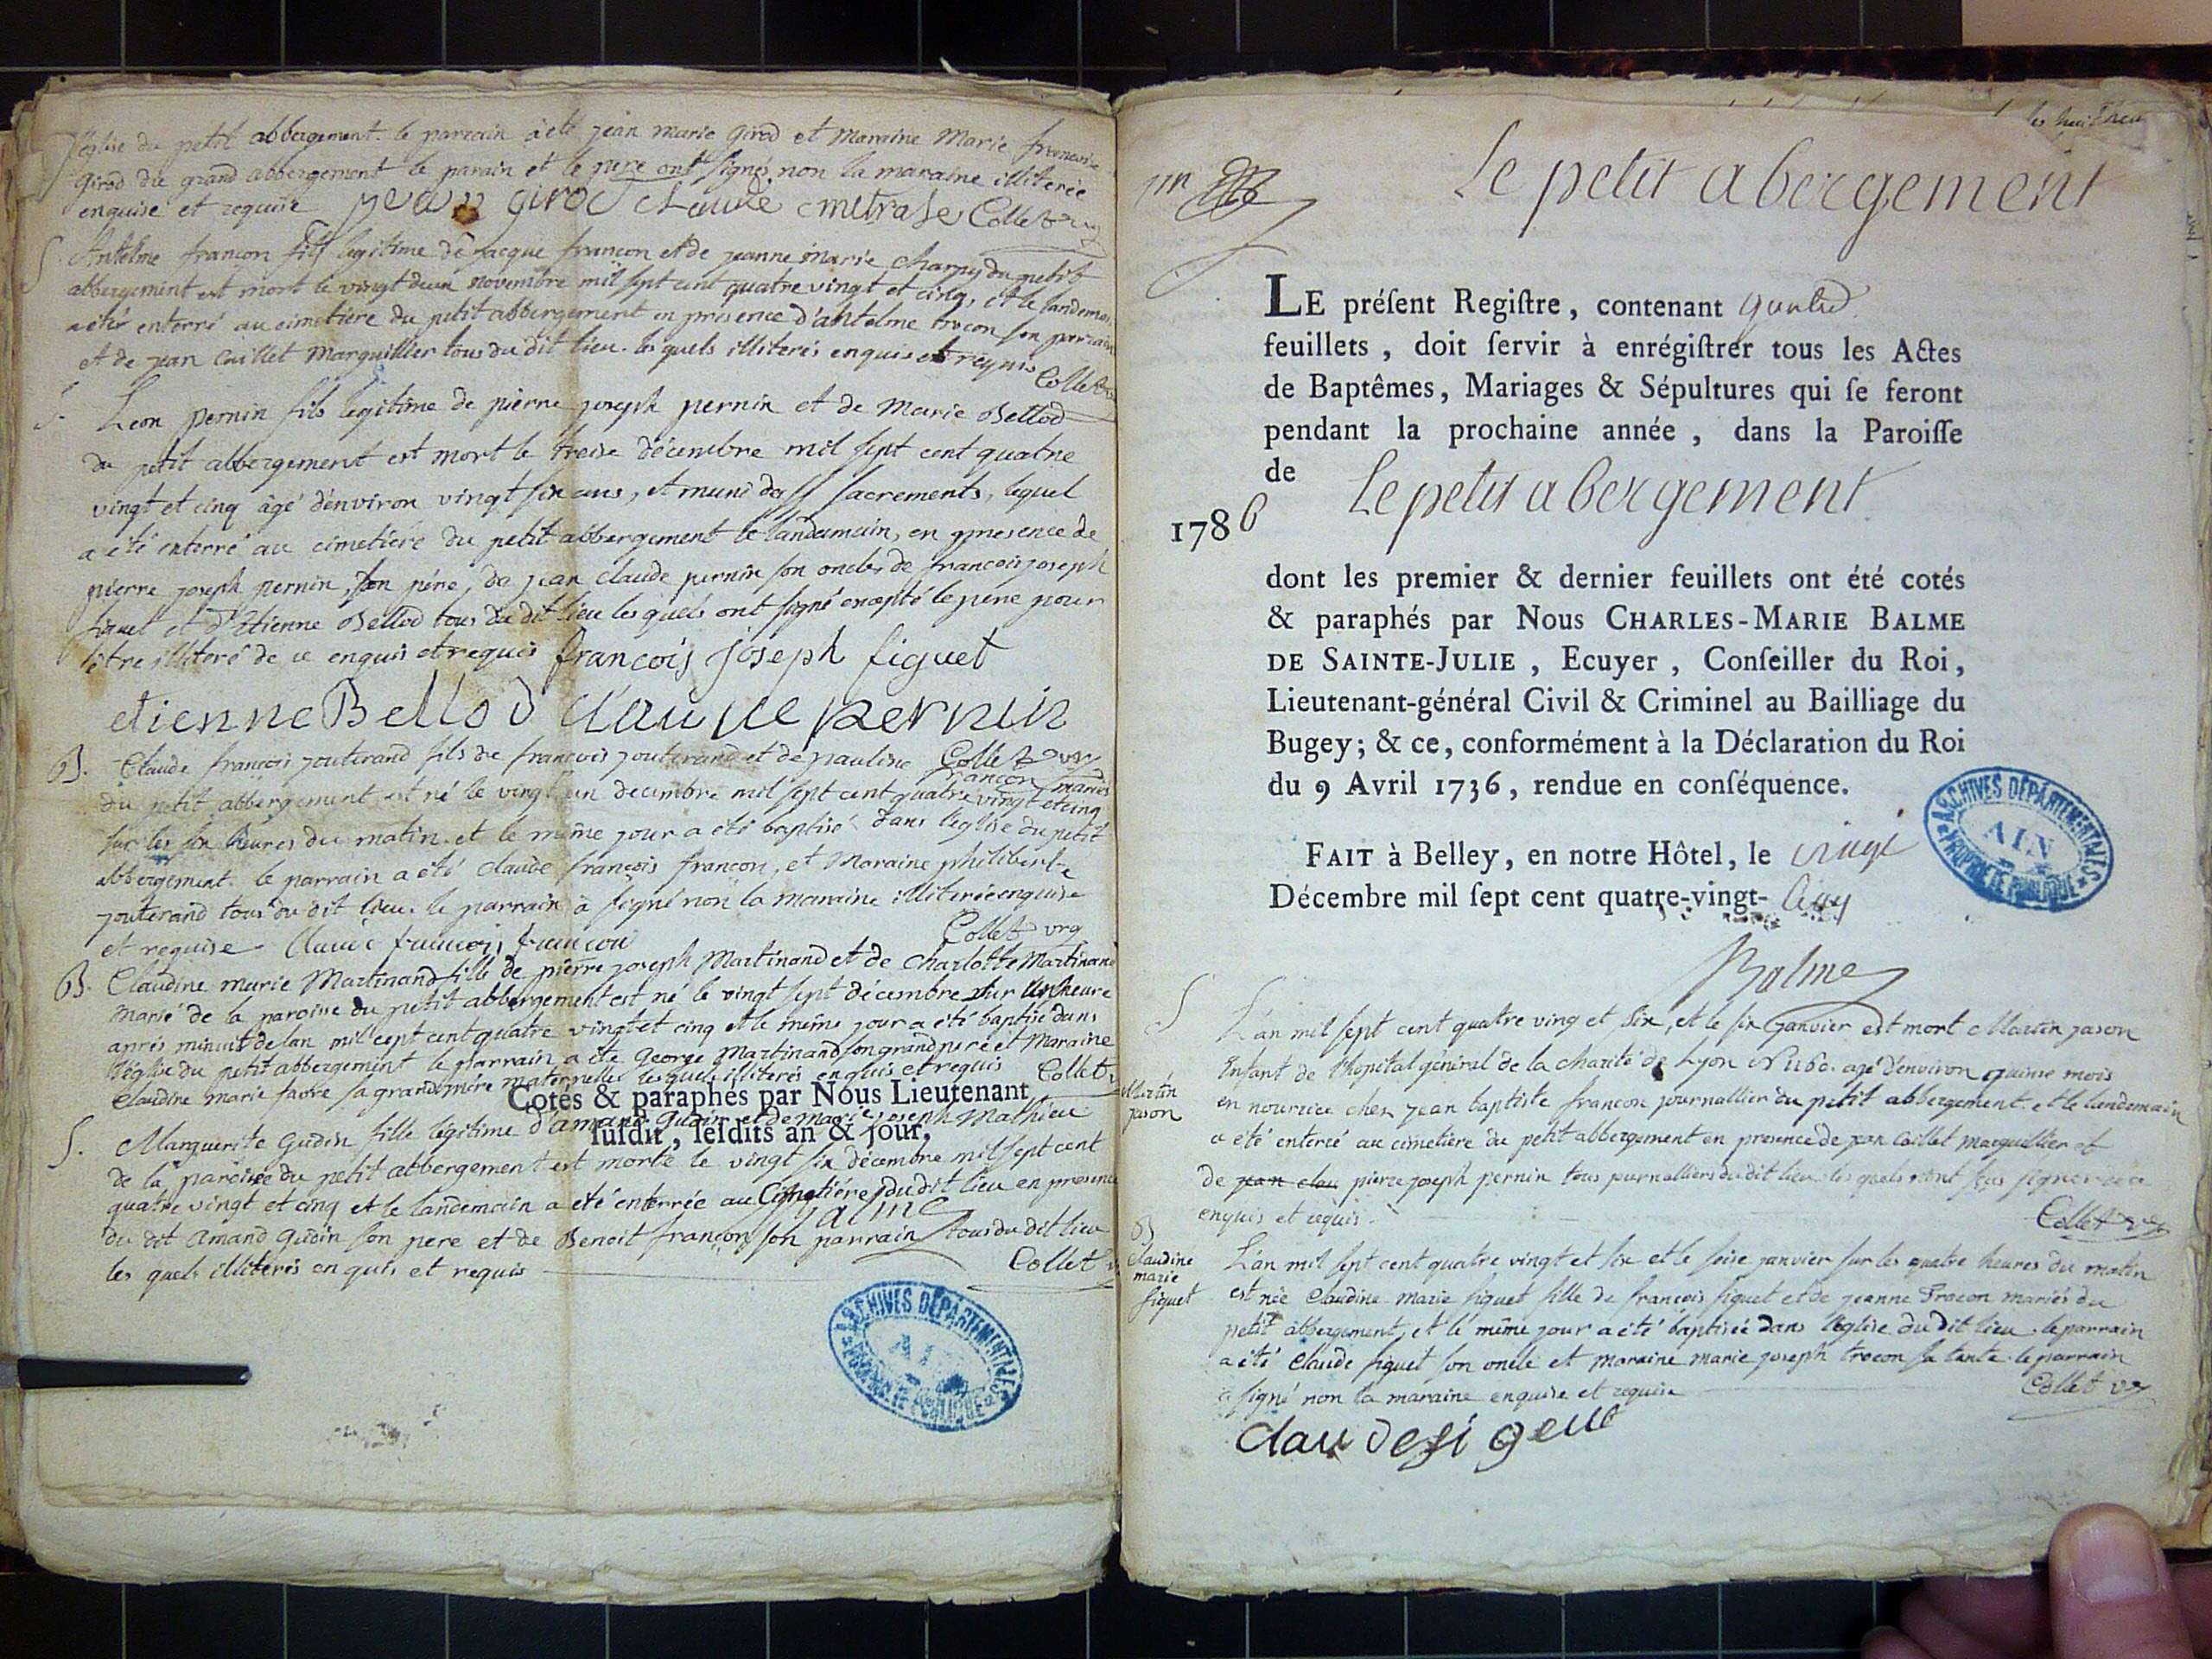 l'église du petit abbergement. le parrain à eté jean marie girod et Maraine Marie francoise
girod du grand abbergement le parain et le pere ont signés non la maraine illiterée
enquise et requise jean girod claude Collet
S. Antelme francon fils legitime de jacque francon et de jeanne marie charpy du petit
abbergement est mort le vingt deux novembre mil sept cent quatre vingt et cinq, et le landemain
a été enterré au cimetière du petit abbergement en presence d'antelme trocon son parrain
et de jean Caillet Marguillier tous du dit lieu. les quels illiterés enquis et requis
Collet
S. Leon pernin fils legitime de pierre joseph pernin et de Marie Bellod
du petit abbergement est mort le treise décembre mil sept cent quatre
vingt et cinq âgé d'environ vingt six ans, et muni des sacrements, lequel
a été enterré au cimetière du petit abbergement le landemain, en presence de
pierre joseph pernin, son père, de jean claude pernin son oncle, de francois joseph
figuet et d'Etienne Bellod tous du dit lieu les quels ont signé excepté le pere pour
être illiteré de ce enquis et requis francois joseph figuet
etienne Bellod claude pernin
Collet
B. Claude françois jouterand fils de francois jouterand et de pauline francon mariés
du petit abbergement est né le vingt un decembre mil sept cent quatre vingt et cinq
sur les six heures du matin. et le même jour a été baptisé dans l'eglise du petit
abbergement. le parrain a été claude françois françon, et Maraine philiberte
jouterand tous du dit lieu. le parrain a signé non la maraine illiterée enquise
et requise claude francois francon Collet
B. Claudine marie Martinand fille de pierre joseph Martinand et de charlotte Martinand
marié de la paroisse du petit abbergement est né le vingt sept décembre sur une heure
après minuit de l'an mil sept cent quatre vingt et cinq et le même jour a été baptisé dans
l'église du petit abbergement le parrain a été George Martinand son grand pere et Maraine
Claudine marie favre sa grand mère maternelle lesquels illiterés enquis et requis Collet
Cotés & paraphés par Nous Lieutenant
susdit, lesdits an & jour,
S. Marguerite Gudin fille légitime d'amand Gudin et de marie joseph Mathieu
de la paroisse du petit abbergement est morte le vingt six décembre mil sept cent
quatre vingt et cinq et le landemain a été enterrée au Cimetière du dit lieu en presence
Balme
du dit Amand Gudin son pere et de Benoit françon son parrain tous du dit lieu
les quels illiterés enquis et requis Collet
ARCHIVES DÉPARTEMENTALES
AIN
PROPRIÉTÉ PUBLIQUE
Le petit abergement
LE présent Registre, contenant
feuillets, doit servir à enrégistrer tous les Actes
de Baptêmes, Mariages & Sépultures qui se feront
pendant la prochaine année, dans la Paroisse
de Le petit abergement
1786
dont les premier & dernier feuillets ont été cotés
& paraphés par Nous CHARLES-MARIE BALME
DE SAINTE-JULIE, Ecuyer, Conseiller du Roi,
Lieutenant-général Civil & Criminel au Bailliage du
Bugey; & ce, conformément à la Déclaration du Roi
du 9 Avril 1736, rendue en conséquence.
FAIT à Belley, en notre Hôtel, le vingt
Décembre mil sept cent quatre-vingt-cinq
ARCHIVES DÉPARTEMENTALES
AIN
PROPRIÉTÉ PUBLIQUE
Balme
S
Martin
jason
L'an mil sept cent quatre ving et six, et le six janvier est mort Martin jason
Enfant de l'hopital général de la charité de Lyon agé d'environ quinse mois
en nourrice chez jean baptiste francon journallier du petit abbergement. et le landemain
a été enterré au cimetière du petit abbergement en presence de jean Caillet marguillier et
de jean clau pierre joseph pernin tous journalliers du dit lieu les quels n'ont seus signer de ce
enquis et requis. Collet
B
Claudine
marie
figuet
L'an mil sept cent quatre vingt et six et le seise janvier sur les quatre heures du matin
est née Claudine marie figuet fille de françois figuet et de jeanne Trocon mariés du
petit abbergement, et le même jour a été baptisée dans l'eglise du dit lieu. le parrain
a été Claude figuet son oncle et maraine marie joseph trocon sa tante. le parrain
a signé non la maraine enquise et requise Collet
claude figeut